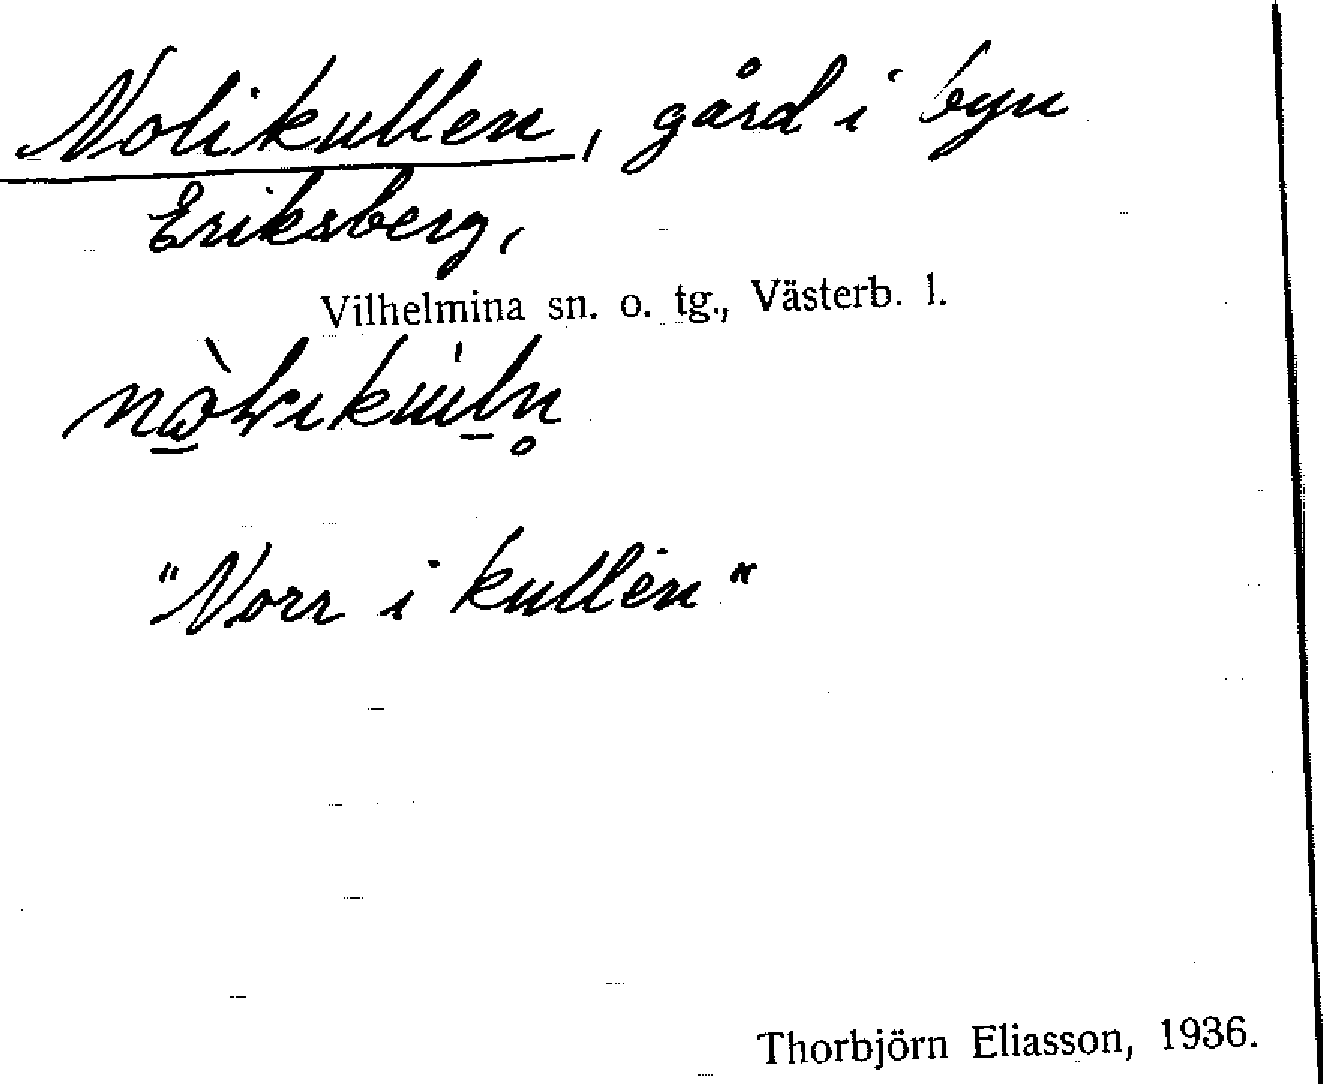 Nolikullen, gård i byn
Eriksberg,
Vilhelmina sn. o. tg., Västerb. l.
"Norr i kullen"
Thorbjörn Eliasson, 1936.